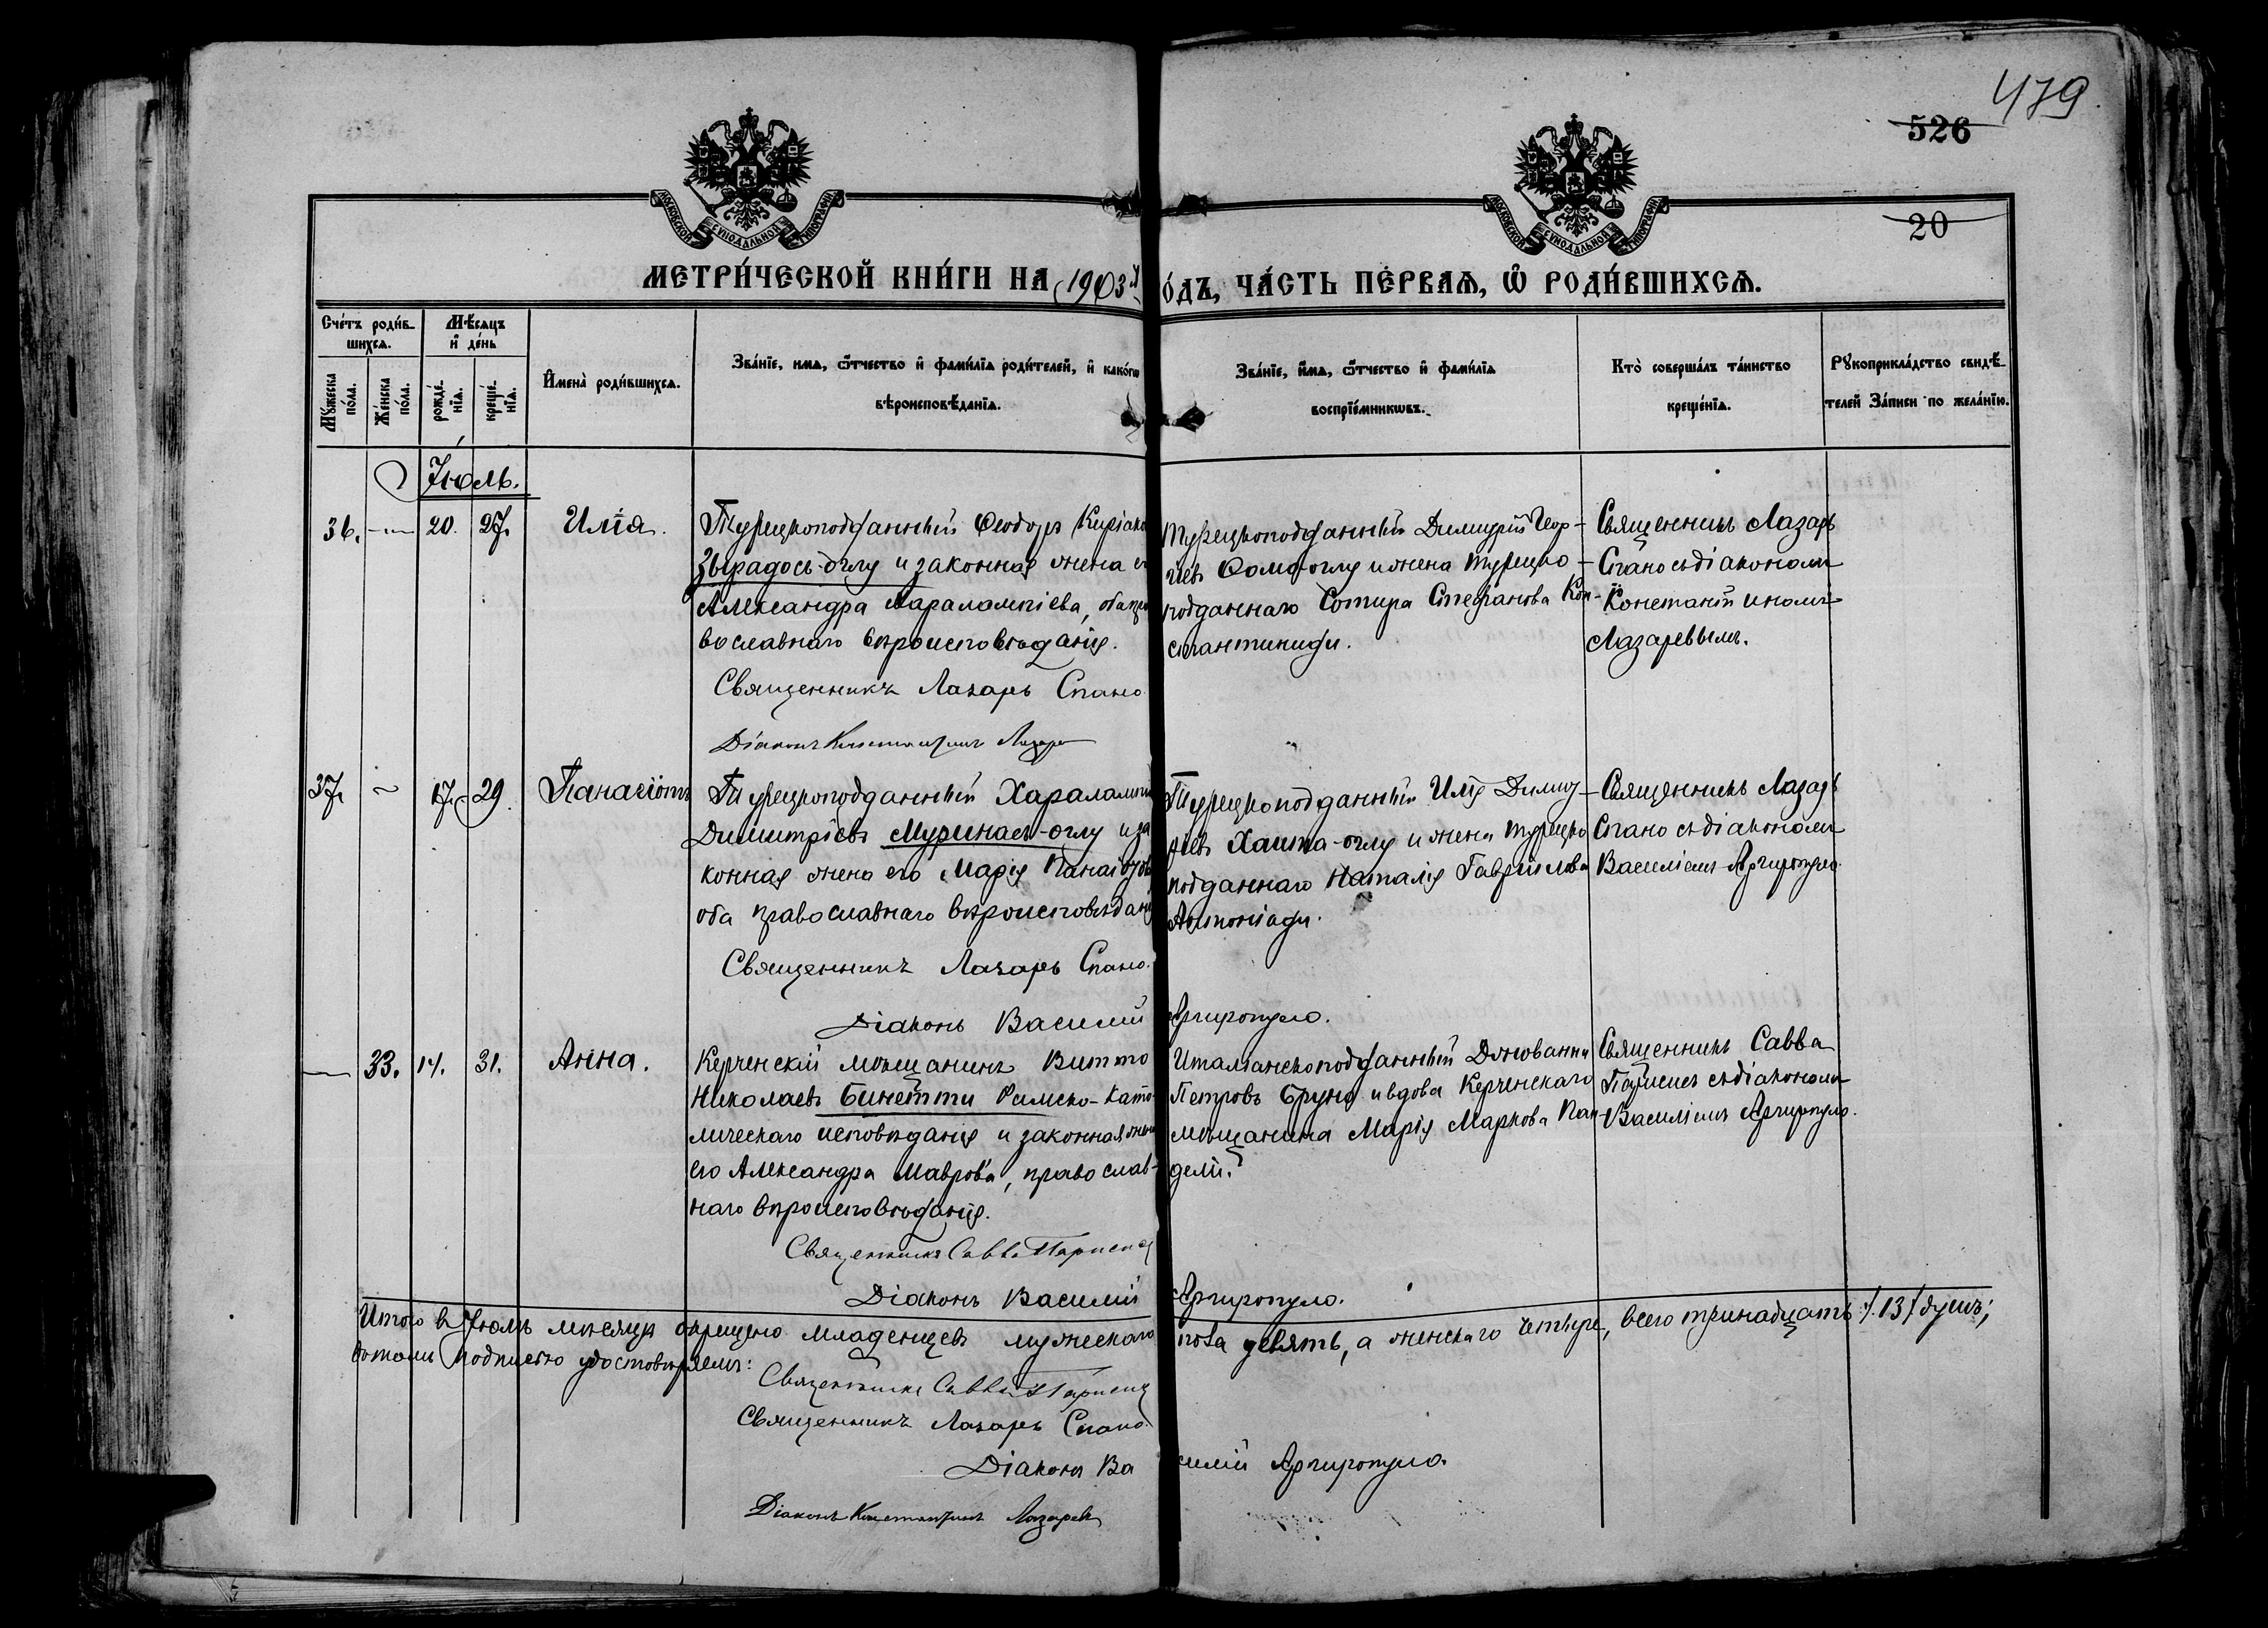 479
526
20
МОСКОВСКОЙ СУНОДАЛЬНОЙ ТИПОГРАФІИ
МОСКОВСКОЙ СУНОДАЛЬНОЙ ТИПОГРАФІИ
МЕТРИ́ЧЕСКОЙ КНИ́ГИ НА 1903 й
О́ДЪ, ЧА́СТЬ ПЕ́РВАѦ, Ѽ РОДИ́ВШИХСѦ.
Сче́тъ роди́в-
шихсѧ.
Мѣ́сѧцъ
и҆ де́нь
Мꙋ́жеска
по́ла.
Же́нска
по́ла.
рожде́-
нїѧ.
креще́-
нїѧ.
И҆мена̀ роди́вшихсѧ.
Зва́нїе, имѧ, ѻ҆́тчество и҆ фами́лїѧ роди́телей, и҆ како́гѡ
вѣроисповѣ́данїѧ.
Зва́нїе, и҆́мѧ, ѻ҆́тчество и҆ фами́лїѧ
воспрїе́мникѡвъ.
Кто̀ соверша́лъ та́инство
креще́нїѧ.
Рꙋкоприкла́дство свидѣ́-
телей За́писи по жела́нїю.
Іюль.
36. — 20. 27. Илія.
Турецкоподданный Ѳеодоръ Киріако
Зырадосъ-оглу и законная жена е
Александра Харалампіева, оба пра
вославнаго вѣроисповѣданія.
Священникъ Лазарь Спано
Діаконъ Константинъ Лазаре
Турецкоподданный Димитрій Геор-
гіевъ Сомо-оглу и жена турецко-
подданнаго Сотира Стефанова Кон-
стантиниди.
Священникъ Лазарь
Спано съ діакономъ
Константиномъ
Лазаревымъ.
37. ~ 17. 29. Панагіотъ
Турецкоподданный Харалампій
Димитріевъ Муринасъ-оглу и за
конная жена его Марія Панаіотова
оба православнаго вѣроисповѣдані
Священникъ Лазарь Спано.
Діаконъ Василій Аргиропуло.
Турецкоподданный Илія Димит-
ріевъ Хаита-оглу и жена турецко
подданнаго Наталія Гавріилова
Антоніади.
Священникъ Лазарь
Спано съ діакономъ
Василіемъ Аргиропуло.
— 33. 14. 31. Анна.
Керченскій мѣщанинъ Витто
Николаевъ Бинетти Римско-Като-
лическаго исповѣданія и законная жена
его Александра Маврова, православ-
наго вѣроисповѣданія.
Священникъ Савва Парисис
Діаконъ Василій Аргиропуло.
Итальянскоподданный Джованни
Петровъ Бруно и вдова Керченскаго
мѣщанина Марія Маркова Пан-
дели.
Священникъ Савва
Парисисъ съ діакономъ
Василіемъ Аргиропуло.
Итого въ Іюлѣ мѣсяцѣ окрещено младенцевъ мужескаго пола девять, а женскаго четыре, всего тринадцать /.13/ душъ;
въ томъ подписью удостовѣряемъ:
Священникъ Савва Парисис
Священникъ Лазарь Спано.
Діаконъ Василій Аргиропуло.
Діаконъ Константинъ Лазаревъ